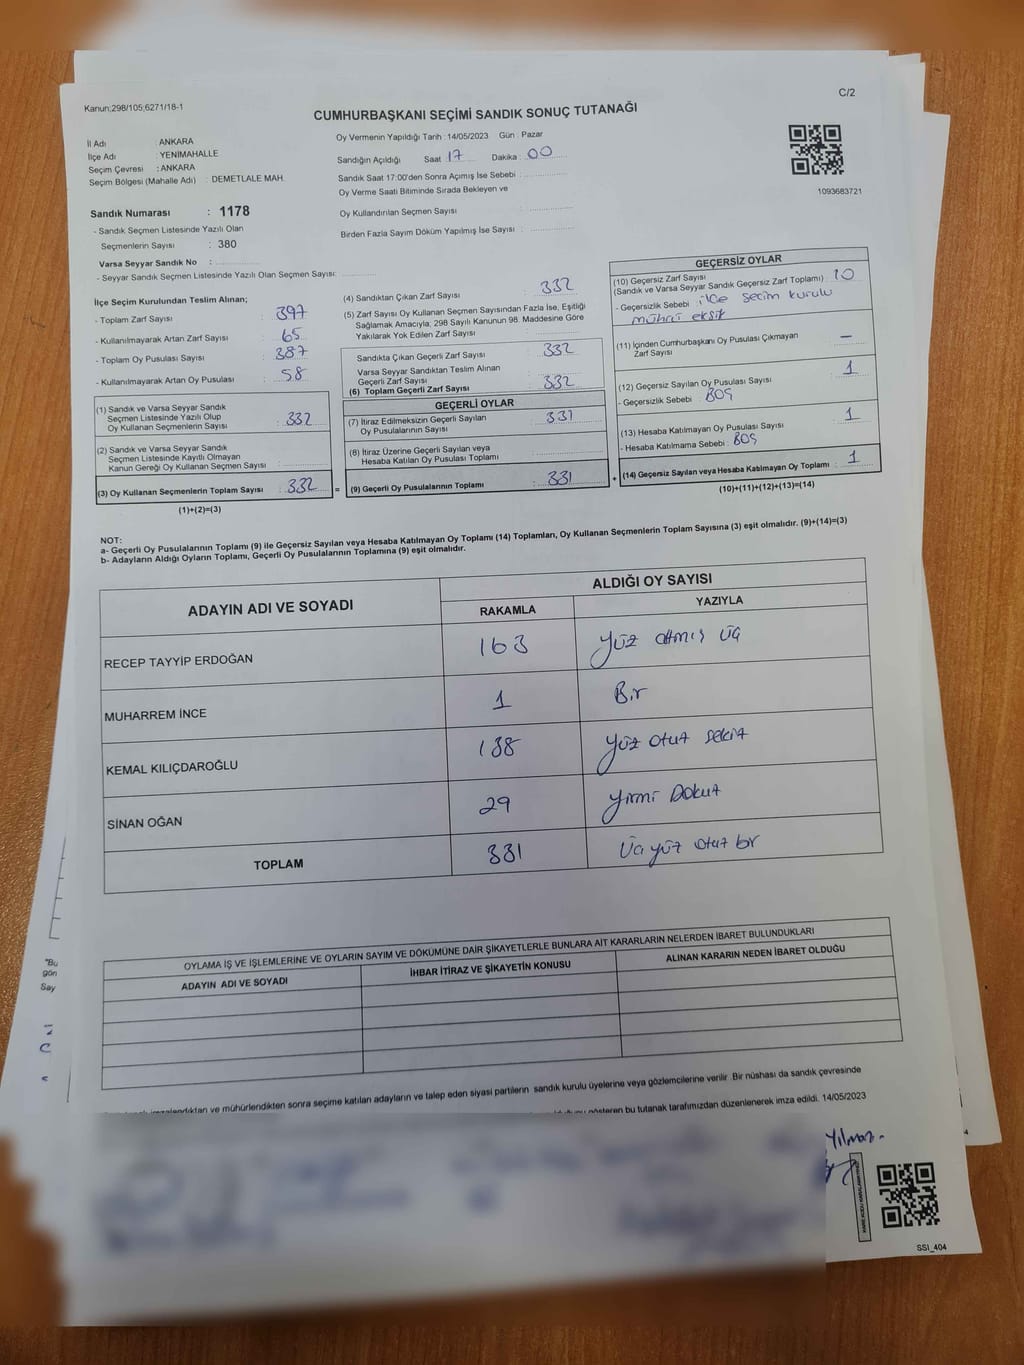 Kanun;298/105;6271/18-1
C/2
CUMHURBAŞKANI SEÇİMİ SANDIK SONUÇ TUTANAĞI
İl Adı : ANKARA
İlçe Adı : YENİMAHALLE
Seçim Çevresi : ANKARA
Seçim Bölgesi (Mahalle Adı) : DEMETLALE MAH.
Oy Vermenin Yapıldığı Tarih : 14/05/2023 Gün : Pazar
Sandığın Açıldığı Saat : 17 Dakika : 00
Sandık Saat 17:00'den Sonra Açımış İse Sebebi :
Oy Verme Saati Bitiminde Sırada Bekleyen ve
Oy Kullandırılan Seçmen Sayısı :
Birden Fazla Sayım Döküm Yapılmış İse Sayısı :
1093683721
Sandık Numarası : 1178
- Sandık Seçmen Listesinde Yazılı Olan
Seçmenlerin Sayısı : 380
Varsa Seyyar Sandık No :
- Seyyar Sandık Seçmen Listesinde Yazılı Olan Seçmen Sayısı:
İlçe Seçim Kurulundan Teslim Alınan;
- Toplam Zarf Sayısı : 397
- Kullanılmayarak Artan Zarf Sayısı : 65
- Toplam Oy Pusulası Sayısı : 387
- Kullanılmayarak Artan Oy Pusulası : 58
(1) Sandık ve Varsa Seyyar Sandık
Seçmen Listesinde Yazılı Olup
Oy Kullanan Seçmenlerin Sayısı : 332
(2) Sandık ve Varsa Seyyar Sandık
Seçmen Listesinde Kayıtlı Olmayan
Kanun Gereği Oy Kullanan Seçmen Sayısı :
(3) Oy Kullanan Seçmenlerin Toplam Sayısı : 332 =
(1)+(2)=(3)
(4) Sandıktan Çıkan Zarf Sayısı : 332
(5) Zarf Sayısı Oy Kullanan Seçmen Sayısından Fazla İse, Eşitliği
Sağlamak Amacıyla, 298 Sayılı Kanunun 98. Maddesine Göre
Yakılarak Yok Edilen Zarf Sayısı :
Sandıkta Çıkan Geçerli Zarf Sayısı : 332
Varsa Seyyar Sandıktan Teslim Alınan
Geçerli Zarf Sayısı
(6) Toplam Geçerli Zarf Sayısı : 332
GEÇERLİ OYLAR
(7) İtiraz Edilmeksizin Geçerli Sayılan
Oy Pusulalarının Sayısı : 331
(8) İtiraz Üzerine Geçerli Sayılan veya
Hesaba Katılan Oy Pusulası Toplamı :
(9) Geçerli Oy Pusulalarının Toplamı : 331 +
GEÇERSİZ OYLAR
(10) Geçersiz Zarf Sayısı
(Sandık ve Varsa Seyyar Sandık Geçersiz Zarf Toplamı) : 10
- Geçersizlik Sebebi : ilçe seçim kurulu
mührü eksik
(11) İçinden Cumhurbaşkanı Oy Pusulası Çıkmayan
Zarf Sayısı : —
(12) Geçersiz Sayılan Oy Pusulası Sayısı : 1
- Geçersizlik Sebebi : BOŞ
(13) Hesaba Katılmayan Oy Pusulası Sayısı : 1
- Hesaba Katılmama Sebebi : BOŞ
(14) Geçersiz Sayılan veya Hesaba Katılmayan Oy Toplamı : 1
(10)+(11)+(12)+(13)=(14)
NOT:
a- Geçerli Oy Pusulalarının Toplamı (9) ile Geçersiz Sayılan veya Hesaba Katılmayan Oy Toplamı (14) Toplamları, Oy Kullanan Seçmenlerin Toplam Sayısına (3) eşit olmalıdır. (9)+(14)=(3)
b- Adayların Aldığı Oyların Toplamı, Geçerli Oy Pusulalarının Toplamına (9) eşit olmalıdır.
ADAYIN ADI VE SOYADI
ALDIĞI OY SAYISI
RAKAMLA YAZIYLA
RECEP TAYYİP ERDOĞAN 163 Yüz atmış üç
MUHARREM İNCE 1 Bir
KEMAL KILIÇDAROĞLU 138 Yüz otuz sekiz
SİNAN OĞAN 29 Yirmi Dokuz
TOPLAM 331 Üçyüz otuz bir
OYLAMA İŞ VE İŞLEMLERİNE VE OYLARIN SAYIM VE DÖKÜMÜNE DAİR ŞİKAYETLERLE BUNLARA AİT KARARLARIN NELERDEN İBARET BULUNDUKLARI
ADAYIN ADI VE SOYADI İHBAR İTİRAZ VE ŞİKAYETİN KONUSU ALINAN KARARIN NEDEN İBARET OLDUĞU
"Bu
gön
Say
ve mühürlendikten sonra seçime katılan adayların ve talep eden siyasi partilerin sandık kurulu üyelerine veya gözlemcilerine verilir .Bir nüshası da sandık çevresinde
gösteren bu tutanak tarafımızdan düzenlenerek imza edildi. 14/05/2023
Yılmaz
SSI_404